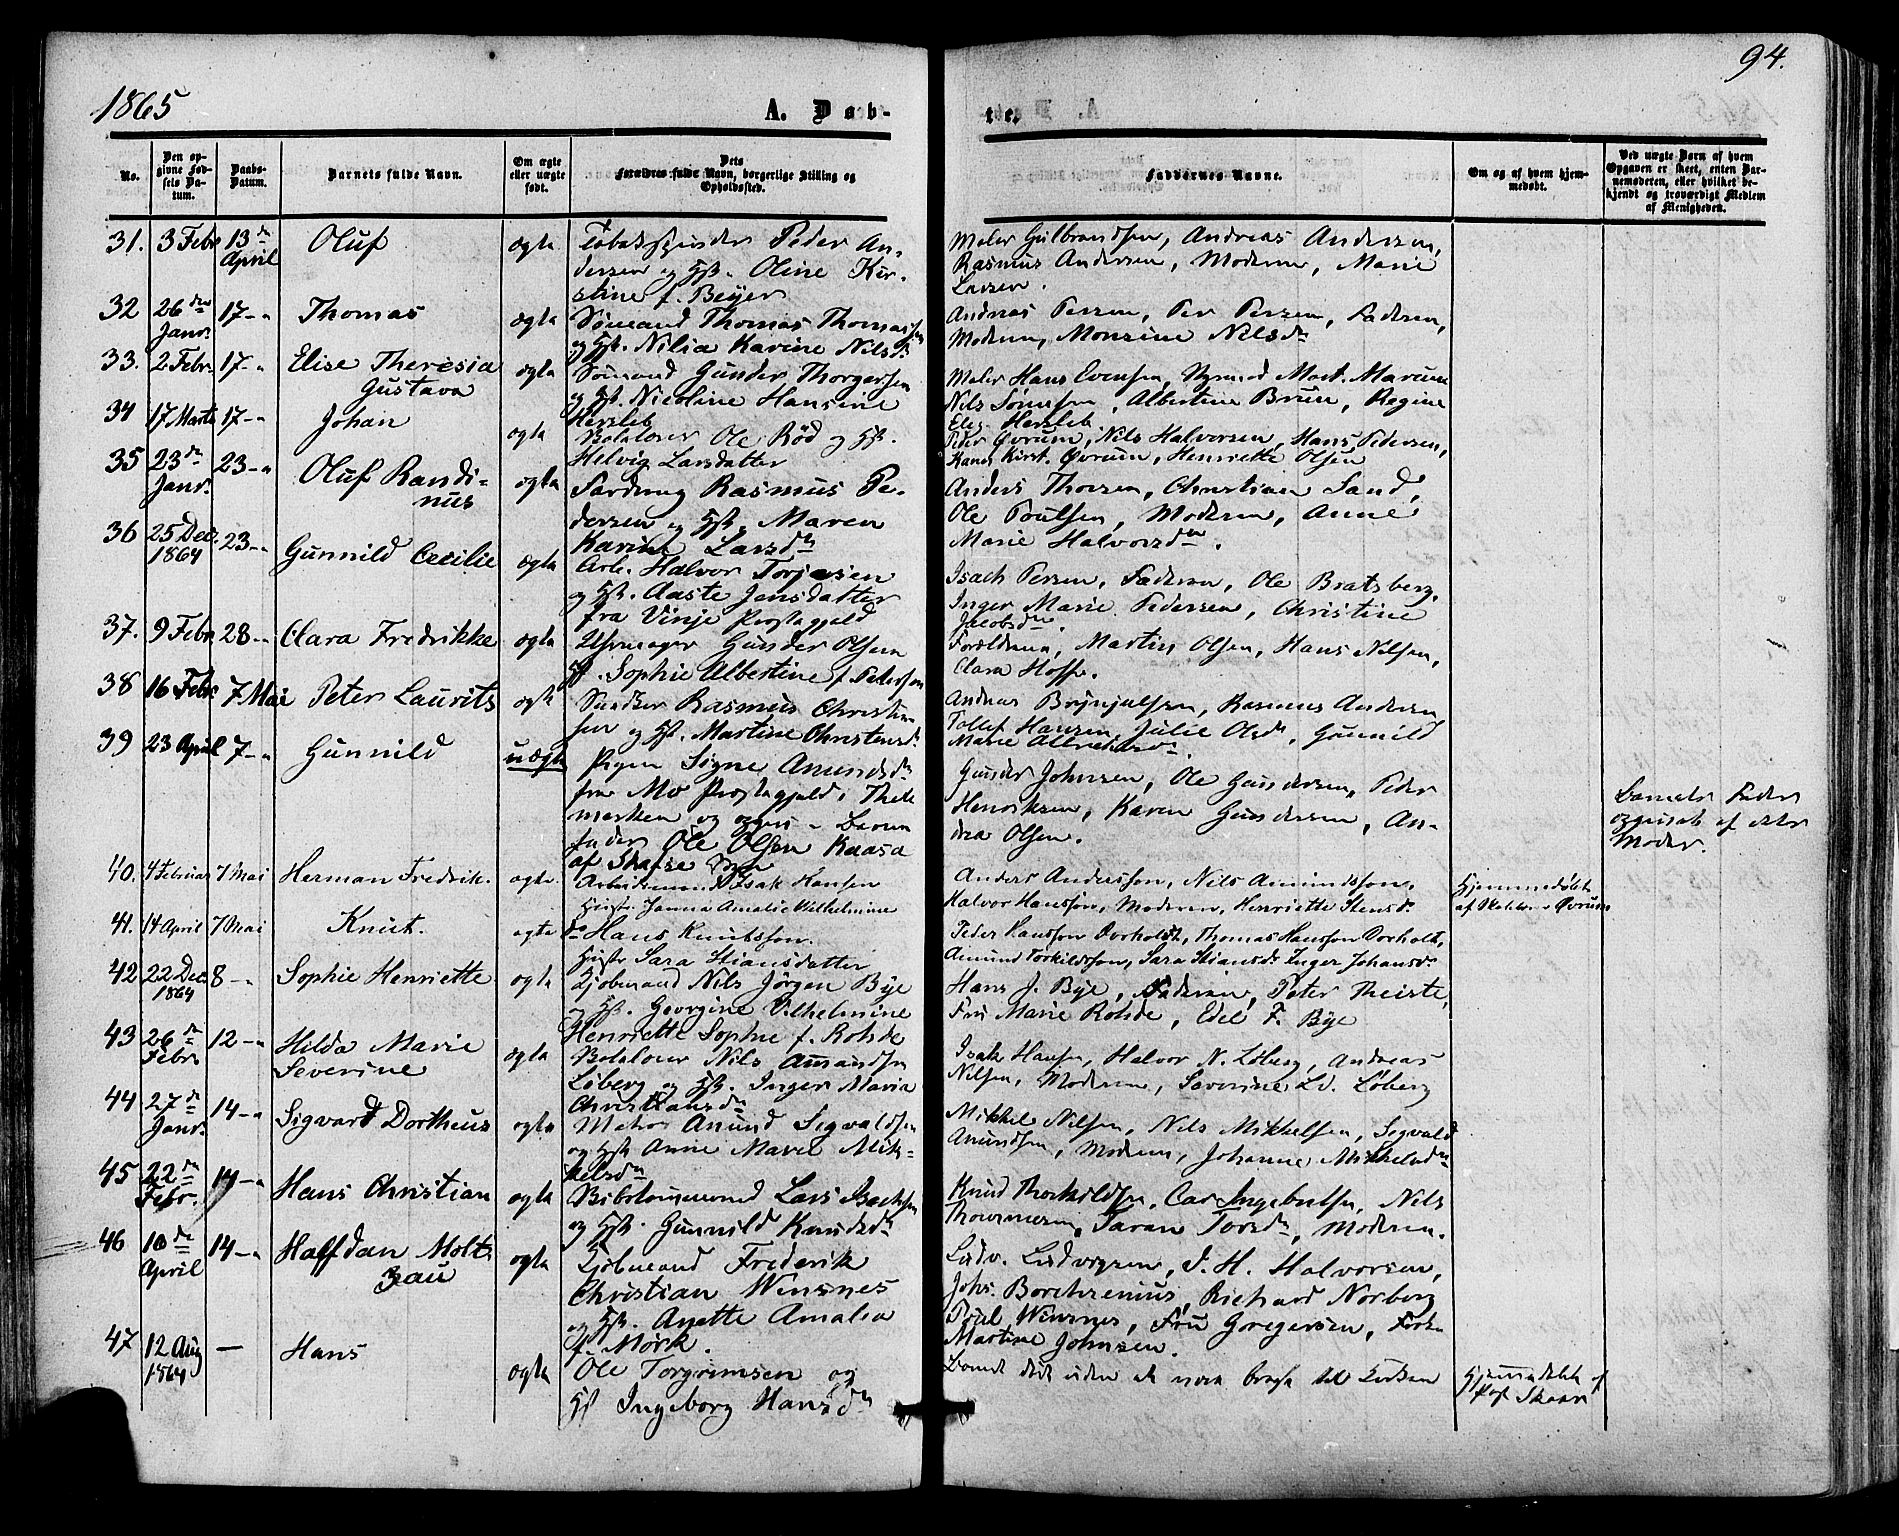 1865
A. Døb-
te.
94.
No.
Den op-
givne Fød-
sels Da-
tum.
Daabs-
Datum.
Barnets fulde Navn.
Om ægte
eller uægte
født.
Dets
Forældres fulde Navn, borgerlige Stilling og
Opholdssted.
Faddernes Navne.
Om og af hvem hjem-
medøbt.
Ved uægte Børn af hvem
Opgaven er skeet, enten Bar-
nemoderen, eller hvilket be-
kjendt og troværdigt Medlem
af Menigheden.
31. 3 Febr 13de April Oluf ægte
Tobakspinder Peder An-
dersen og Hst. Oline Kir-
stine f. Beyer
Maler Gulbrandsen, Andreas Andersen,
Rasmus Andersen, Moderen, Marie
Larsen.
32 26de Janr. 17-" Thomas ægte
Sømand Thomas Thomassen
og Hst. Nilia Karine Nilsdr
Andreas Persen, Per Persen, Faderen,
Moderen, Monsine Nilsdr
33. 2 Febr. 17-" Elise Theresia
Gustava ægte
Sømand Gunder Thorgersen
og Hst. Nicoline Hansine
Hersleb
Maler Hans Evensen, Mart.
Nils Sørensen, Albertine Brun, Regine
Elis. Hersleb
34 17 Marts 17-" Johan ægte
Ole Rød og Hst.
Helvig Larsdatter
Peder Øvrum, Nils Halvorsen, Hans Pedersen,
Karen Kirst. Øvrum, Henriette Olsen
35 23de Janr. 23-" Oluf Randi-
nus ægte
Rasmus Pe-
dersen og Hst. Maren
Karine Larsdr
Anders Thorsen, Christian Sand,
Ole Poulsen, Moderen, Anne
Marie Halvorsdr.
36 25 Dec. 1864 23-" Gunnild Cecilie ægte
Arb. Halvor Torjesen
og Hst. Aaste Jensdatter
fra Vinje Prestegjeld
Isach Persen, Faderen, Ole Bratsberg,
Inger Marie Pedersen, Christine
Jacobsdr.
37. 9 Febr 28-" Clara Fredrikke ægte
Uhrmager Gunder Olsen
Hst. Sophie Albertine f. Pedersen
Forældrene, Martin Olsen, Hans Nilsen,
Clara Hoff.
38 16 Febr 7 Mai Peter Laurits ægte
Snedker Rasmus Christen
sen og Hst. Martine Christensdr
Andreas Brynjulfsen, Rasmus Andersen
Tollef Hansen, Julie Olsdr, Gunnild
Marie
39 23 April 7-" Gunnild uægte
Pigen Signe Amundsdr
fra Mo Prestegjeld, Thele
marken og opgiv. Barne
fader Ole Olsen Kaasa
af
Gunder Johnsen, Ole Gundersen, Peder
Henriksen, Karen Gundersen, An-
drea Olsen.
Barnets Fader
opgivet af dets
Moder.
40. 4 Februar 7 Mai Herman Fredrik. ægte
Arbeidsmand Isak Hansen
Hustr. Janna Amalie Wilhelmine
Anders Anderssøn, Nils Amundssøn,
Halvor Hanssøn, Moderen, Henriette Stensdr
Hjemmedøbt
af Øvrum
41. 14 April 7 Mai Knut. ægte
do Hans Knutssøn.
Hustr Sara Stiansdatter
Peder Hanssøn Dorholt, Thomas Hanssøn Dorholt,
Amund Torkildssøn, Sara Stiansdr Inger Johansdr
42 22 Dec. 1864 8-" Sophie Henriette ægte
Kjøbmand Nils Jørgen Bye
og Hst. Georgine Vilhelmine
Henriette Sophie f. Rohde
Hans J. Bye, Faderen, Peter Theiste,
Fru Marie Rohde, Edel F. Bye
43 26de Febr. 12-" Hilda Marie
Severine ægte
Nils Amundsen
Løberg og Hst. Inger Maria
Christiansdr
Isak Hansen, Halvor N. Løberg, Andreas
Nilsen, Moderen, Severine Løberg
44 27de Janr. 14-" Sigvard Dortheus ægte
Anund Sigvaldsen
og Hst Anne Marei Mik-
kelsdr
Mikkel Nilsen, Nils Mikkelsen, Sigvald
Anundsen, Moderen, Johanne Mikkelsdr
45 22de Febr. 14-" Hans Christian ægte
Lars
og Hst. Gunnild Knudsdr
Knud Thorkildsen, Ingebretsen, Nils
Taran Torsdr, Moderen.
46 10de April 14-" Halfdan Molt
zau ægte
Kjøbmand Frederik
Christian Wensnes
og Hst. Anette Amalia
f. Mørk.
Ludv. Ludvigsen, J. H. Halvorsen,
Johs. Borchrenius, Richard Norberg
Poul Wensnes, Fru Gregersen,
Martine Johnsen.
47 12 Aug 1864 — Hans ægte
Ole Torgrimsen og
Hst Ingeborg Hansdr
Barnet døde uden at være bragt til Kirken
Hjemmedøbt af
Skaar